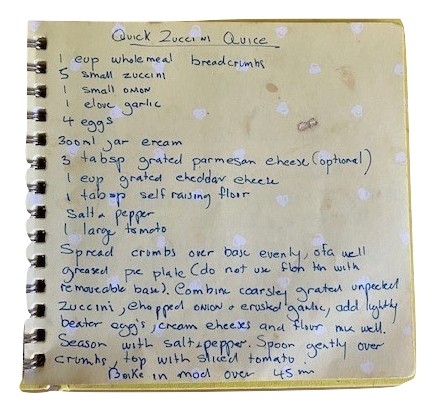 Quick Zuccini Quice
1 cup wholemeal breadcrumbs
5 small zuccini
1 small onion
1 clove garlic
4 eggs
300ml jar cream
3 tabsp grated parmesan cheese (optional)
1 cup grated cheddar cheese
1 tabsp self raising flour
Salt & pepper
1 large tomato
Spread crumbs over base evenly, of a well
greased pie plate (do not use flan tin with
removeable base). Combine coarsley grated unpeeled
zuccini, chopped onion & crushed garlic, add lightly
beaten eggs, cream cheeses and flour mix well.
Season with salt & pepper. Spoon gently over
crumbs, top with sliced tomato.
Bake in mod oven 45 mn